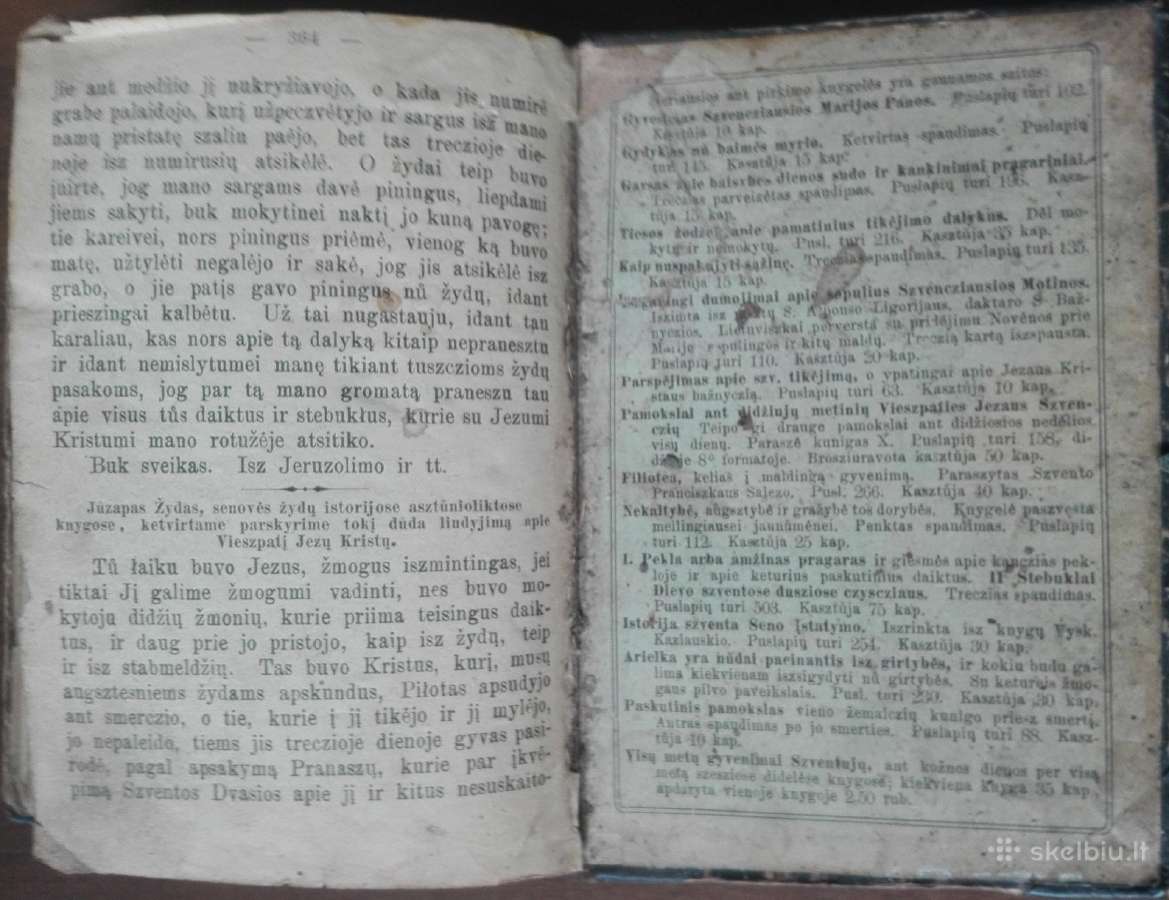 — 364 —
jie ant medžio jį nukryžiavojo, o kada jis numirė
grabe palaidojo, kurį užpeczvėtyjo ir sargus isz mano
namų pristatę szaliu paėjo, bet tas treczioje die-
noje isz numirusių atsikėlė. O žydai teip buvo
įnirtę, jog mano sargams davė piningus, liepdami
jiems sakyti, buk mokytinei naktį jo kuną pavogę;
tie kareivei, nors piningus priėmė, vienog ką buvo
matę, užtylėti negalėjo ir sakė, jog jis atsikėlė isz
grabo, o jie patįs gavo piningus nů žydų, idant
prieszingai kalbėtu. Už tai nugastauju, idant tau
karaliau, kas nors apie tą dalyką kitaip nepranesztu
ir idant nemislytumei manę tikiant tuszczioms žydų
pasakoms, jog par tą mano gromatą praneszu tau
apie visus tůs daiktus ir stebukłus, kurie su Jezumi
Kristumi mano rotužėje atsitiko.
Buk sveikas. Isz Jeruzolimo ir tt.
Jůzapas Žydas, senovės žydų istorijose asztůnioliktose
knygose, ketvirtame parskyrime tokį důda liudyjimą apie
Vieszpatį Jezų Kristų.
Tů łaiku buvo Jezus, žmogus iszmintingas, jei
tiktai Jį galime žmogumi vadinti, nes buvo mo-
kytoju didžių žmonių, kurie priima teisingus daik-
tus, ir daug prie jo pristojo, kaip isz žydų, teip
ir isz stabmeldžių. Tas buvo Kristus, kurį, musų
augsztesniems žydams apskundus, Piłotas apsudyjo
ant smerczio, o tie, kurie į jį tikėjo ir jį mylėjo,
jo nepaleido, tiems jis treczioje dienoje gyvas pasi-
rodė, pagal apsakymą Pranaszų, kurie par įkvė-
pimą Szventos Dvasios apie jį ir kitus nesuskaito-
ant pirkimo knygelės yra gaunamos szitos:
Gyvenimas Szvencziausios Marijos Panos. Puslapių turi 102.
Kasztůja 10 kap.
Gydyklas nů baimės myrio. Ketvirtas spaudimas. Puslapių
turi 145. Kasztůja 15 kap.
Garsas apie baisybes dienos sudo ir kankinimai pragariniai.
Treczias parveizėtas spaudimas. Puslapių turi 196. Kasz-
tůja 15 kap.
Tiesos žodžei apie pamatinius tikėjimo dalykus. Dėl mo-
kytų ir nemokytų. Pusl. turi 216. Kasztůja 35 kap.
Kaip nuspakajyti sąžinę. Treczias spaudimas. Puslapių turi 135.
Kasztůja 15 kap.
dumojimai apie sopulius Szvencziausios Motinos.
Iszimta isz S. Alponso Ligorijaus, daktaro S. Baž-
nyczios. Lietuviszkai perversta su pridėjimu Novėnos prie
Marijos sopulingos ir kitų maldų. Treczią kartą iszspausta.
Puslapių turi 110. Kasztůja 20 kap.
Parspėjimas apie szv. tikėjimą, o ypatingai apie Jezaus Kri-
staus bažnyczią. Puslapių turi 63. Kasztůja 10 kap.
Pamokslai ant didžiųjų metinių Vieszpaties Jezaus Szven-
czių Teipogi drauge pamokslai ant didžiosios nedėlios
visų dienų. Paraszė kunigas X. Puslapių turi 158, di-
džioje 8° formatoje. Brosziuravota kasztůja 50 kap.
Filiotea, kelias į maldingą gyvenimą. Paraszytas Szvento
Pranciszkaus Salezo. Pusl. 266. Kasztůja 40 kap.
Nekaltybė, augsztybė ir gražybė tos dorybės. Knygelė paszvęsta
mellingiausei jaunůmenei. Penktas spaudimas. Puslapių
turi 112. Kasztůja 25 kap.
I. Pekla arba amžinas pragaras ir giesmės apie kanczias pek-
loje ir apie keturius paskutinius daiktus. II Stebuklai
Dievo szventose dusziose czyscziaus. Treczias spaudimas.
Puslapių turi 503. Kasztůja 75 kap.
Istorija szventa Seno Įstatymo. Iszrinkta isz knygų Vysk.
Kazlauskio. Puslapių turi 254. Kasztůja 30 kap.
Arielka yra nůdai pacinantis isz girtybės, ir kokiu budu ga-
lima kiekvienam iszsigydyti nů girtybės. Su keturiais žmo-
gaus pilvo paveikslais. Pusl. turi 230. Kasztůja 30 kap.
Paskutinis pamokslas vieno žemaiczių kunigo priesz smertį.
Antras spaudimas po jo smerties. Puslapių turi 88. Kasz-
tůja 10 kap.
Visų metų gyvenimai Szventųjų, ant kožnos dienos per visą
metą szesziose didelėse knygose; kiekviena knyga 35 kap.,
apdaryta vienoje knygoje 2,50 rub.
skelbiu.lt